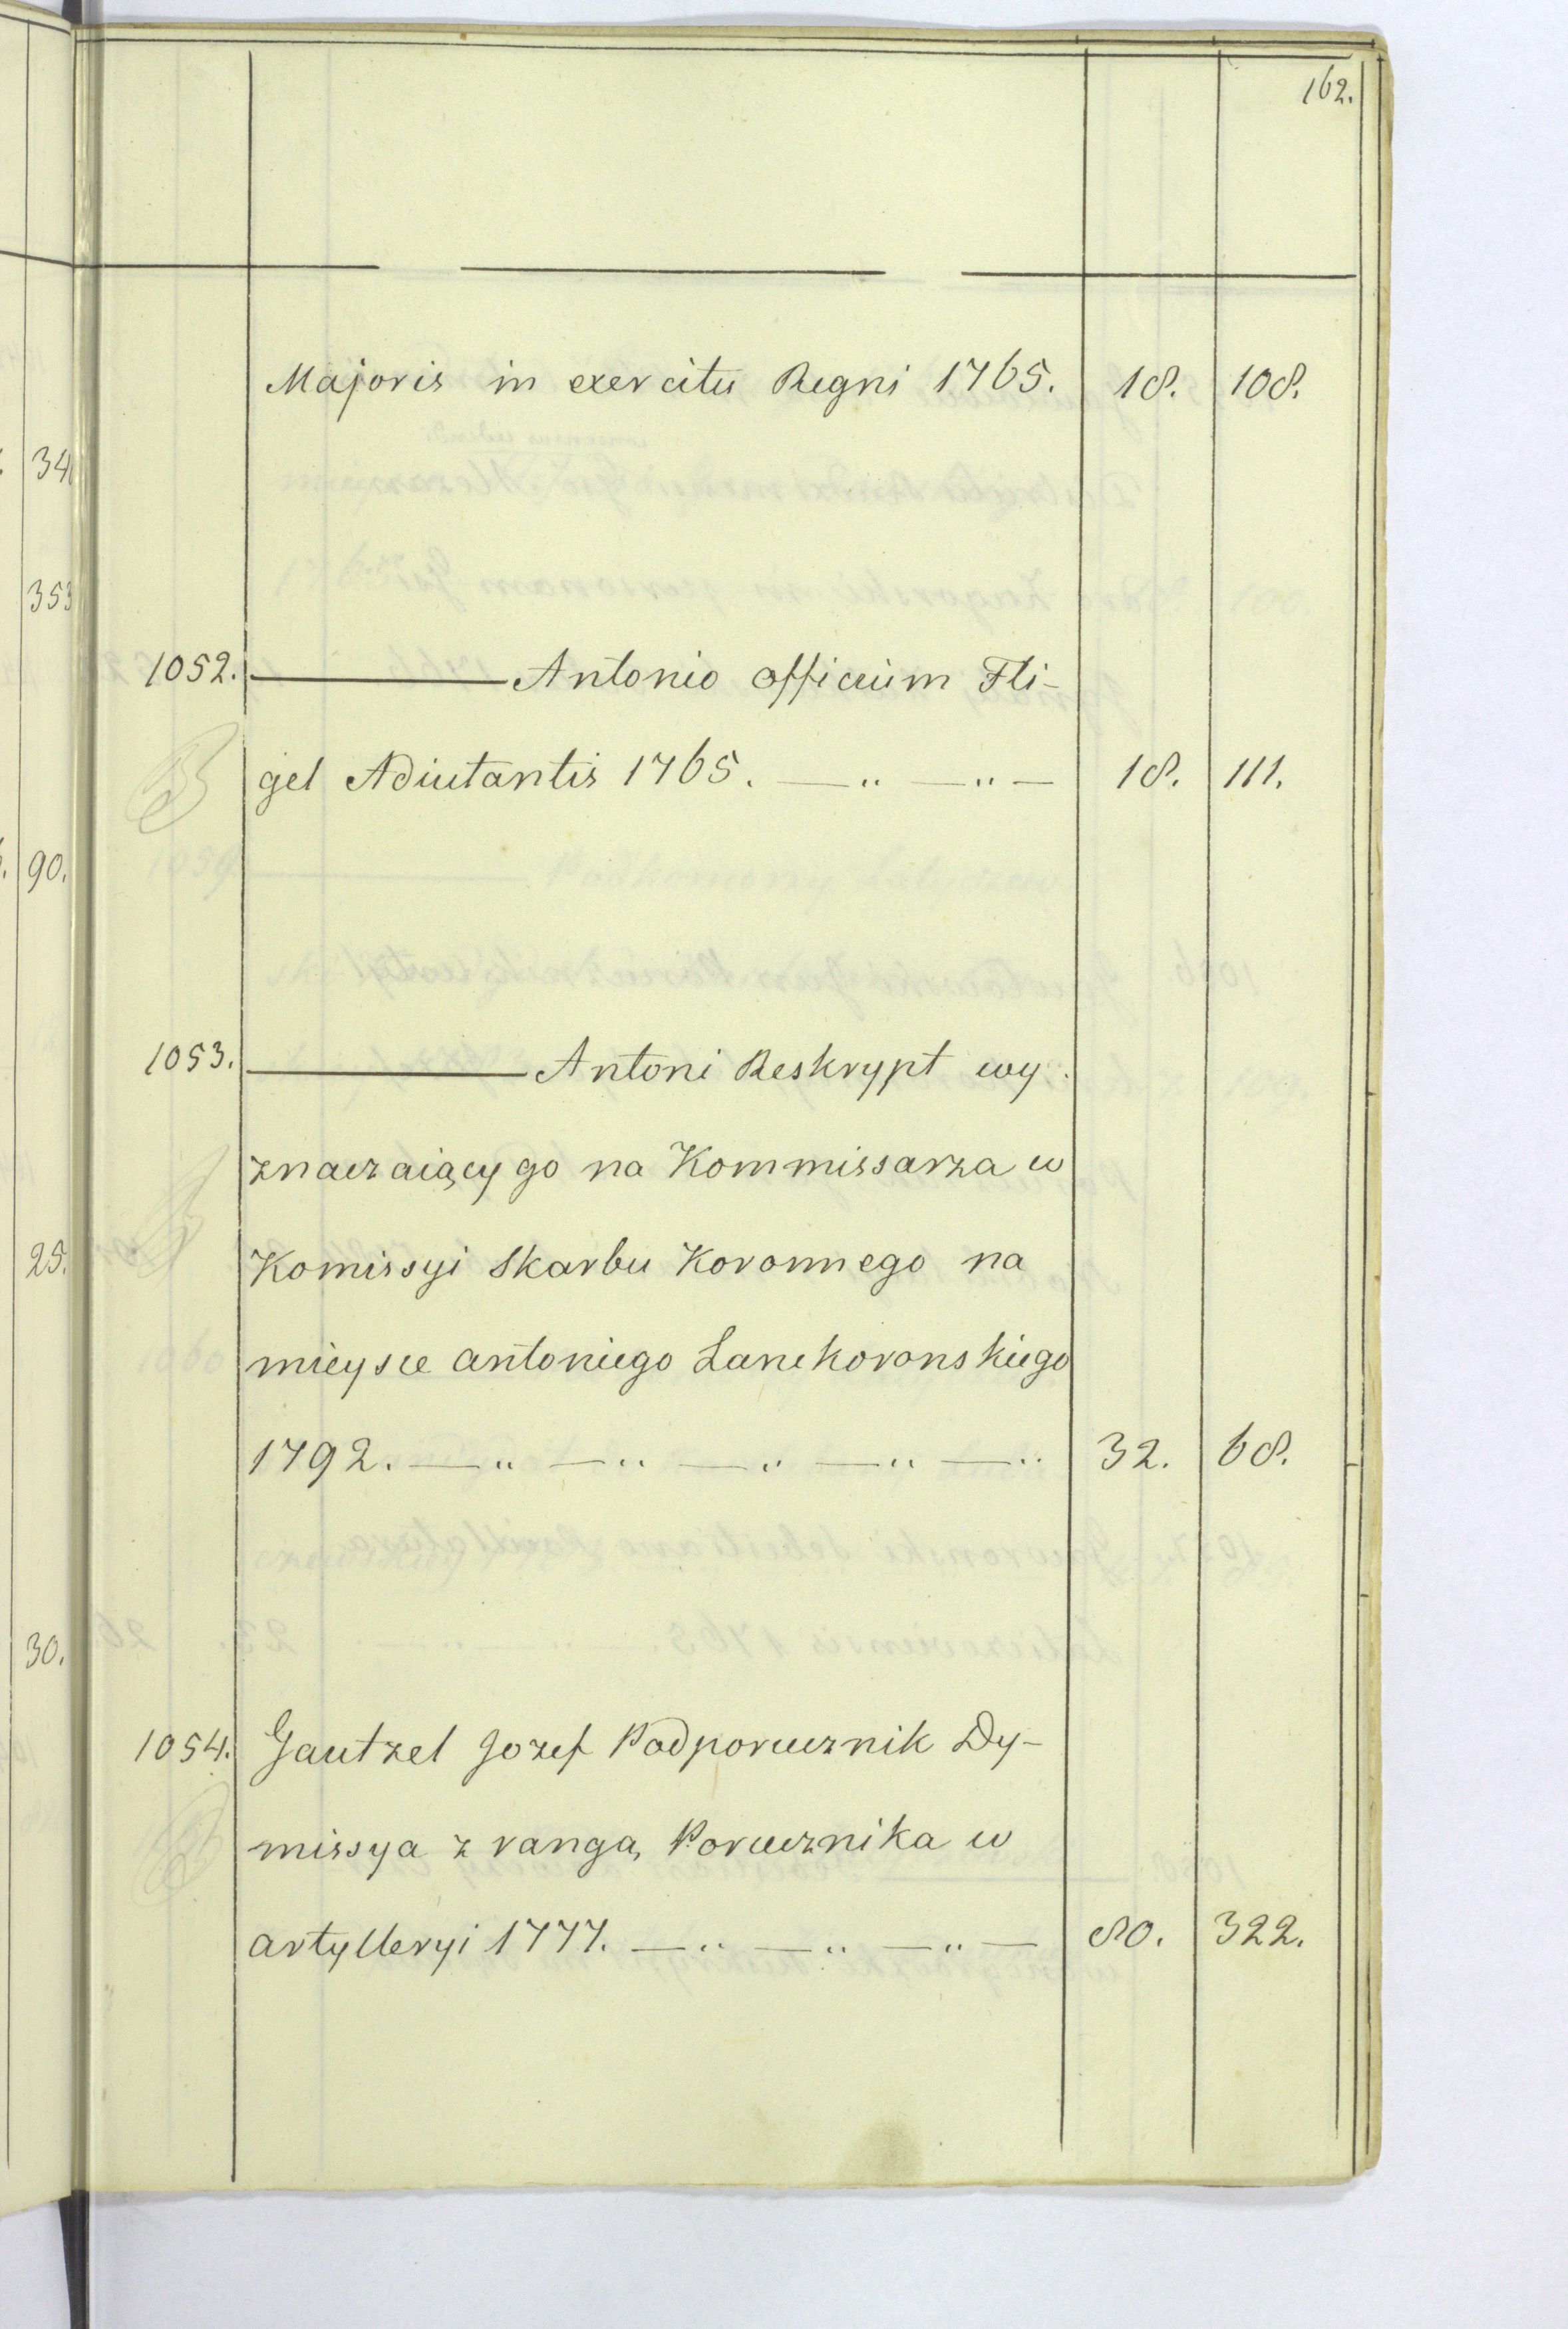 162.
Majoris in exercitu Regni 1765. 18. 108.
1052. ——— Antonio officium Fli-
gel Adiutantis 1765. — „ — „ — 18. 111.
1053. ——— Antoni Reskrypt wy-
znaczaiący go na Kommissarza w
Komissyi Skarbu Koronnego na
mieysce antoniego Lanckoronskiego
1792. — „ — „ — „ — „ — „ 32. 68.
1054. Gautzel Jozef Podporucznik Dy-
missya z rangą Porucznika w
artylleryi 1777. — „ — „ — „ — 80. 322.
34
353
90.
25.
30.